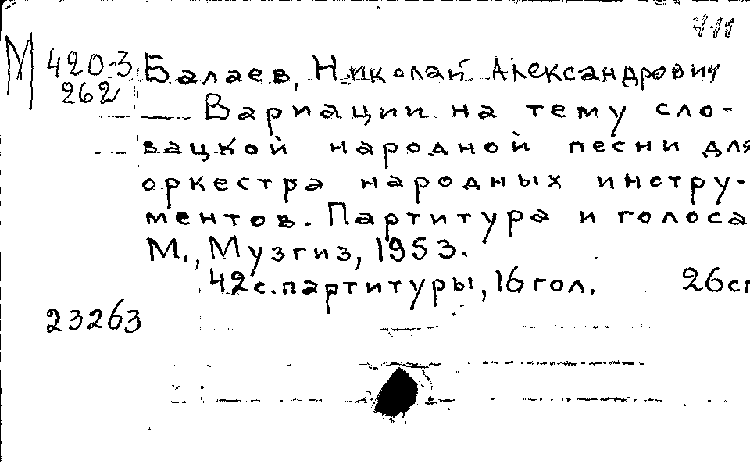 М 420-3 Балаев, Николай Александрович
262 Вариации на тему сло-
вацкой народной песни для
оркестра народных инстру-
ментов. Партитура и голоса
М., Музгиз, 1953.
42с. партитуры, 16 гол. 26
23263